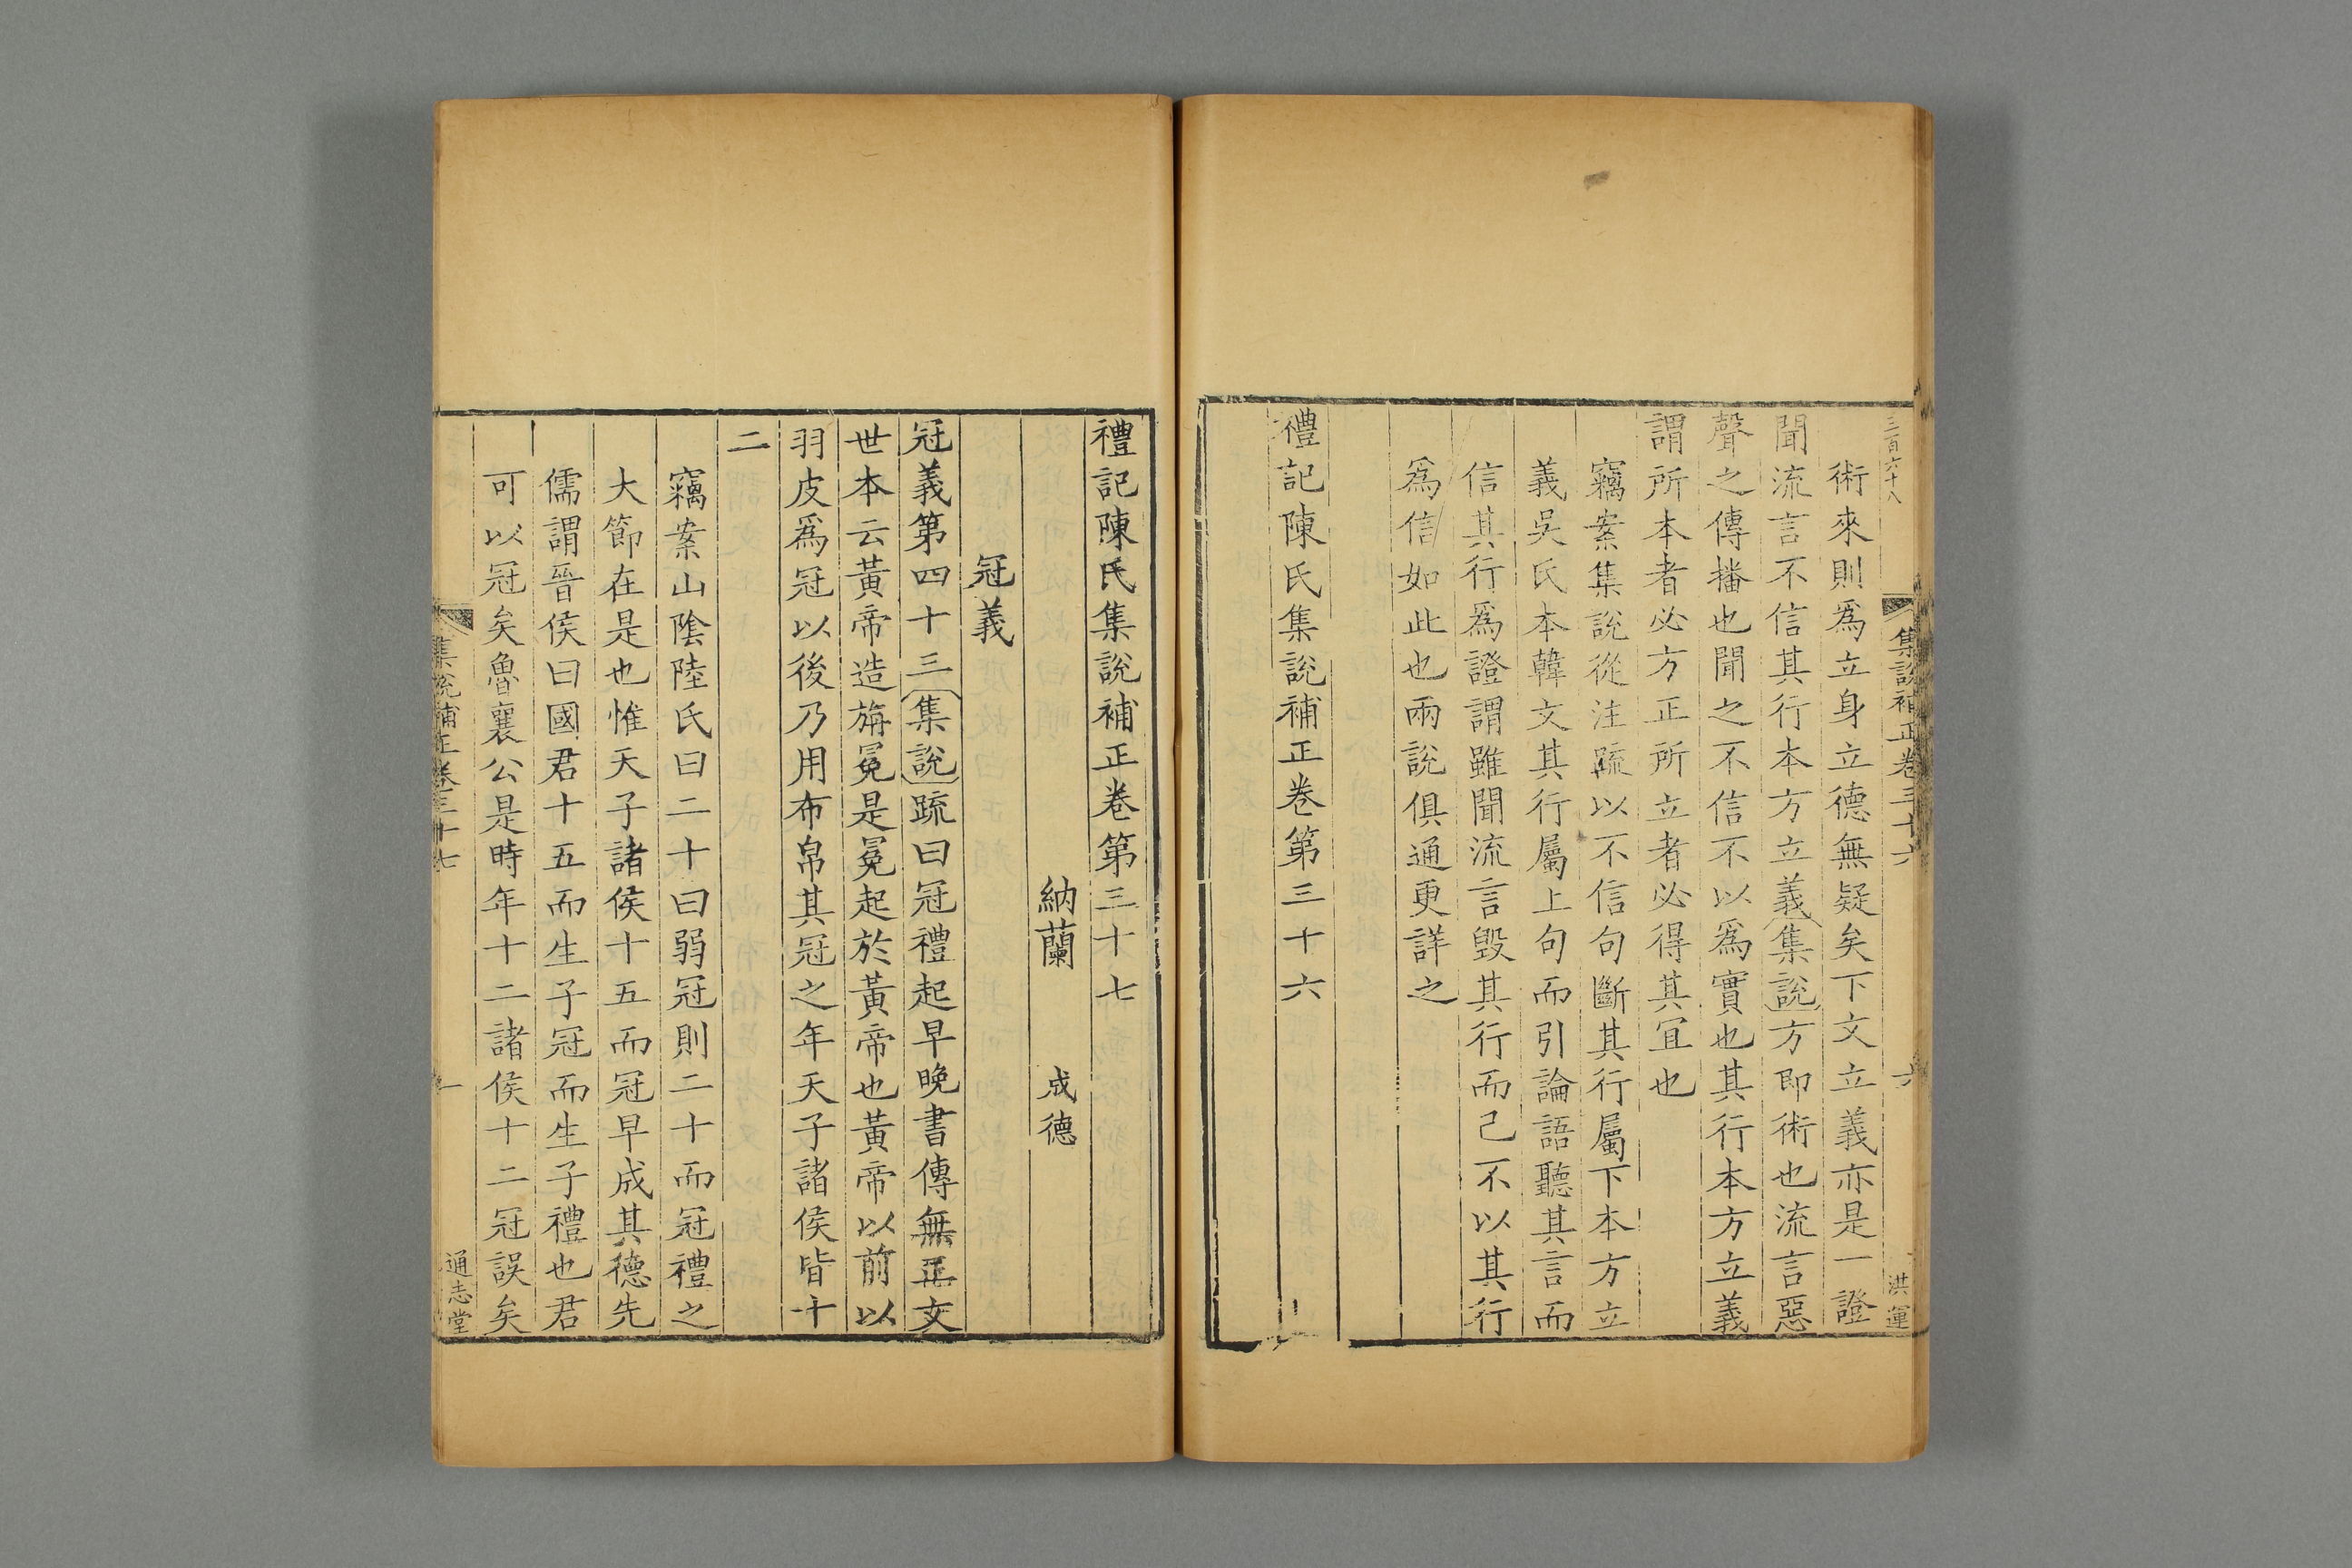 三百六十八
集說補正卷三十六
六
洪運
術來則爲立身立德無疑矣下文立義亦是一證
聞流言不信其行本方立義集說方即術也流言惡
聲之傳播也聞之不信不以爲實也其行本方立義
謂所本者必方正所立者必得其宜也
竊案集說從注疏以不信句斷其行屬下本方立
義吳氏本韓文其行屬上句而引論語聽其言而
信其行爲證謂雖聞流言毀其行而己不以其行
爲信如此也兩說俱通更詳之
禮記陳氏集說補正卷第三十六
禮記陳氏集說補正卷第三十七
納蘭 成德
冠義
冠義第四十三集說疏曰冠禮起早晚書傳無正文
世本云黃帝造旃冕是冕起於黃帝也黃帝以前以
羽皮爲冠以後乃用布帛其冠之年天子諸侯皆十
二
竊案山陰陸氏曰二十曰弱冠則二十而冠禮之
大節在是也惟天子諸侯十五而冠早成其德先
儒謂晉侯曰國君十五而生子冠而生子禮也君
可以冠矣魯襄公是時年十二諸侯十二冠誤矣
集說補正卷三十七
一
通志堂